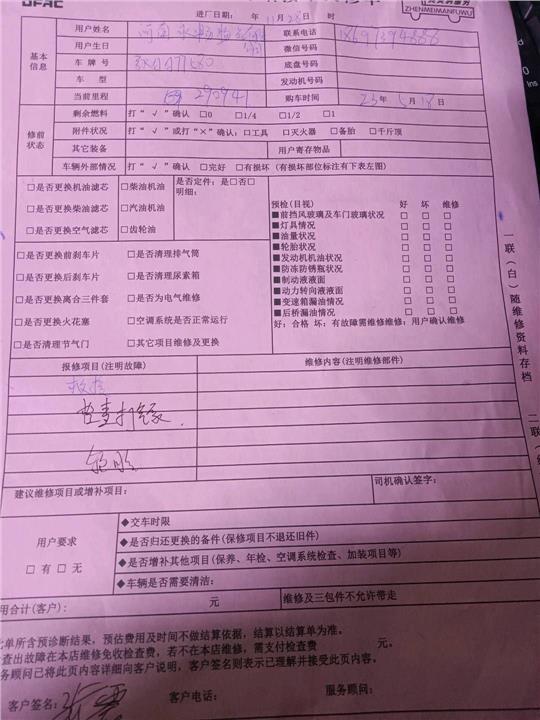 DFAC
ZHENMEIMANFUWU
进厂日期: 年 11月28日 时
基本信息
用户姓名 河南 联系电话
用户生日 微信号码
车 牌 号 底盘号码
车 型 发动机号码
当前里程 290941 购车时间 23年 5月18日
修前状态
剩余燃料 打“√”确认 □0 □1/4 □1/2 □1
附件状况 打“√”或打“×”确认:□工具 □灭火器 □备胎 □千斤顶
其它装备 用户寄存物品
车辆外部情况 打“√”确认 □完好 □有损坏(有损坏部位标注有下表左图)
□是否更换机油滤芯 □柴油机油 是否定件:是□否□
□是否更换柴油滤芯 □汽油机油 明细:
□是否更换空气滤芯 □齿轮油
□是否更换前刹车片 □是否清理排气筒
□是否更换后刹车片 □是否清理尿素箱
□是否更换离合三件套 □是否为电气维修
□是否更换火花塞 □空调系统是否正常运行
□是否清理节气门 □其它项目维修及更换
预检(目视) 好 坏 维修
■前挡风玻璃及车门玻璃状况 □ □ □
■灯具情况 □ □ □
■油量状况 □ □ □
■轮胎状况 □ □ □
■发动机机油状况 □ □ □
■防冻防锈瓶状况 □ □ □
■制动液液面 □ □ □
■动力转向液液面 □ □ □
■变速箱漏油情况 □ □ □
■后桥漏油情况 □ □ □
好:合格 坏:有故障需维修维修:用户确认维修
一联(白)随维修资料存档
二联(
报修项目(注明故障) 维修内容(注明维修部件)
检查
建议维修项目或增补项目: 司机确认签字:
用户要求
□ 有 □ 无
◆交车时限
◆是否归还更换的备件(保修项目不退还旧件)
◆是否增补其他项目(保养、年检、空调系统检查、加装项目等)
◆车辆是否需要清洁:
用合计(客户): 元 维修及三包件不允许带走
此单所含预诊断结果,预估费用及时间不做结算依据,结算以结算单为准。
检查出故障在本店维修免收检查费,若不在本店维修,需支付检查费 元。
服务顾问已将此页内容详细向客户说明,客户签名则表示已理解并接受此页内容。
客户签名: 客户电话: 服务顾问: